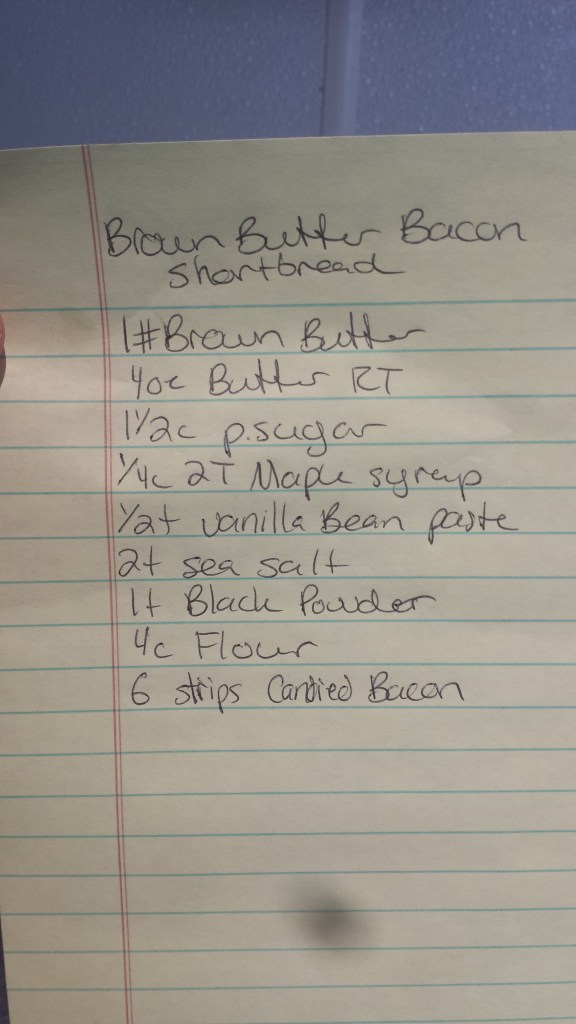 Brown Butter Bacon
Shortbread
1# Brown Butter
4oz Butter RT
1 1/2c p.sugar
1/4c 2T Maple syrup
1/2t vanilla Bean paste
2t sea salt
1t Black Powder
4c Flour
6 strips Candied Bacon